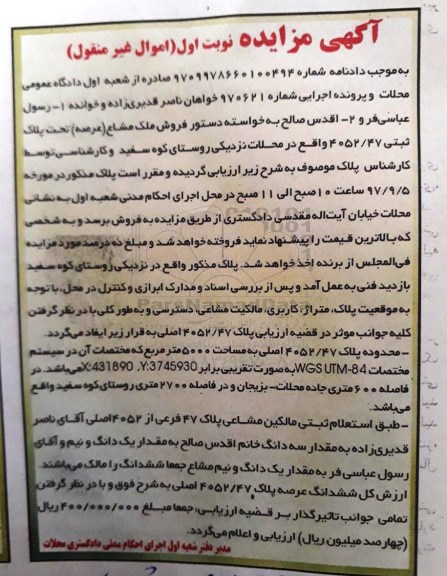 آگهی مزایده نوبت اول (اموال غیر منقول)
به موجب دادنامه شماره ۹۷۰۹۹۷۸۶۶۰۱۰۰۴۹۴ صادره از شعبه اول دادگاه عمومی
محلات و پرونده اجرایی شماره ۹۷۰۶۲۱ خواهان ناصر قدیری‌زاده و خوانده ۱- رسول
عباسی‌فر و ۲- اقدس صالح به خواسته دستور فروش ملک مشاع (عرصه) تحت پلاک
ثبتی ۴۰۵۲/۴۷ واقع در محلات نزدیکی روستای کوه سفید و کارشناسی توسط
کارشناس پلاک موصوف به شرح زیر ارزیابی گردیده و مقرر است پلاک مذکور در مورخه
۹۷/۹/۵ ساعت ۱۰ صبح الی ۱۱ صبح در محل اجرای احکام مدنی شعبه اول به نشانی
محلات خیابان آیت‌اله مقدسی دادگستری از طریق مزایده به فروش برسد و به شخصی
که بالاترین قیمت را پیشنهاد نماید فروخته خواهد شد و مبلغ ده درصد مورد مزایده
فی‌المجلس از برنده اخذ خواهد شد. پلاک مذکور واقع در نزدیکی روستای کوه سفید
بازدید فنی به عمل آمد و پس از بررسی اسناد و مدارک ابرازی و کنترل در محل، با توجه
به موقعیت پلاک، متراژ، کاربری، مالکیت مشاعی، دسترسی و به طور کلی با در نظر گرفتن
کلیه جوانب موثر در قضیه ارزیابی پلاک ۴۰۵۲/۴۷ اصلی به قرار زیر ایفاد می‌گردد.
- محدوده پلاک ۴۰۵۲/۴۷ اصلی به مساحت ۵۰۰۰ متر مربع که مختصات آن در سیستم
مختصات WGS UTM-84 به صورت تقریبی برابر X:431890 ,Y:3745930 می‌باشد. در
فاصله ۶۰۰ متری جاده محلات- بزیجان و در فاصله ۲۷۰۰ متری روستای کوه سفید واقع
می‌باشد.
- طبق استعلام ثبتی مالکین مشاعی پلاک ۴۷ فرعی از ۴۰۵۲ اصلی آقای ناصر
قدیری‌زاده به مقدار سه دانگ خانم اقدس صالح به مقدار یک دانگ و نیم و آقای
رسول عباسی فر به مقدار یک دانگ و نیم مشاع جمعا ششدانگ را مالک می‌باشند.
ارزش کل ششدانگ عرصه پلاک ۴۰۵۲/۴۷ اصلی به شرح فوق و با در نظر گرفتن
تمامی جوانب تاثیرگذار بر قضیه ارزیابی، جمعا مبلغ ۴۰۰/۰۰۰/۰۰۰ ریال
(چهارصد میلیون ریال) ارزیابی و اعلام می‌گردد.
مدیر دفتر شعبه اول اجرای احکام مدنی دادگستری محلات